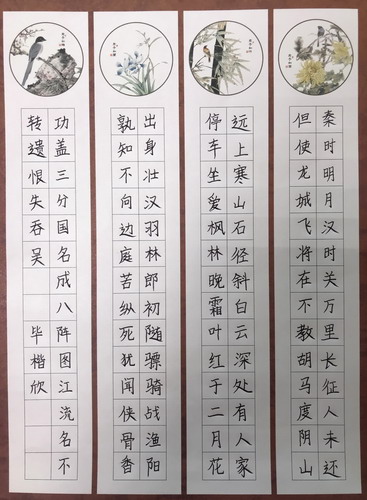 秦时明月汉时关万里长征人未还
但使龙城飞将在不教胡马度阴山
远上寒山石径斜白云深处有人家
停车坐爱枫林晚霜叶红于二月花
出身壮汉羽林郎初随骠骑战渔阳
孰知不向边庭苦纵死犹闻侠骨香
功盖三分国名成八阵图江流名不
转遗恨失吞吴 毕楷欣